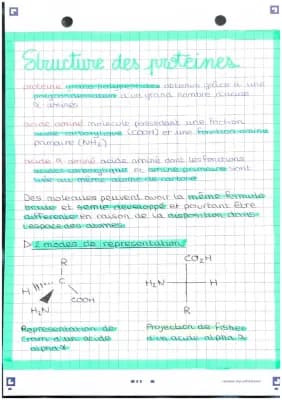 Structure des protéines
protéine obtenue grâce à une
à un grand nombre d'acide
α aminés
acide aminé molécule possédant une fonction
acide carboxylique (COOH) et une fonction amine
primaire (NH2)
acide α aminé acide aminé dont les fonctions
acides carboxyliques et amine primaire sont
liée au même atome de carbone
Des molécules peuvent avoir la même formule
brute et semie développé et pourtant être
différente en raison de la disposition dans
l'espace des atomes.
2 modes de représentation
R
H C COOH
H2N
Représentation de
cram d'un acide
alpha α
CO2H
H2N H
R
Projection de fisher
d'un acide alpha α